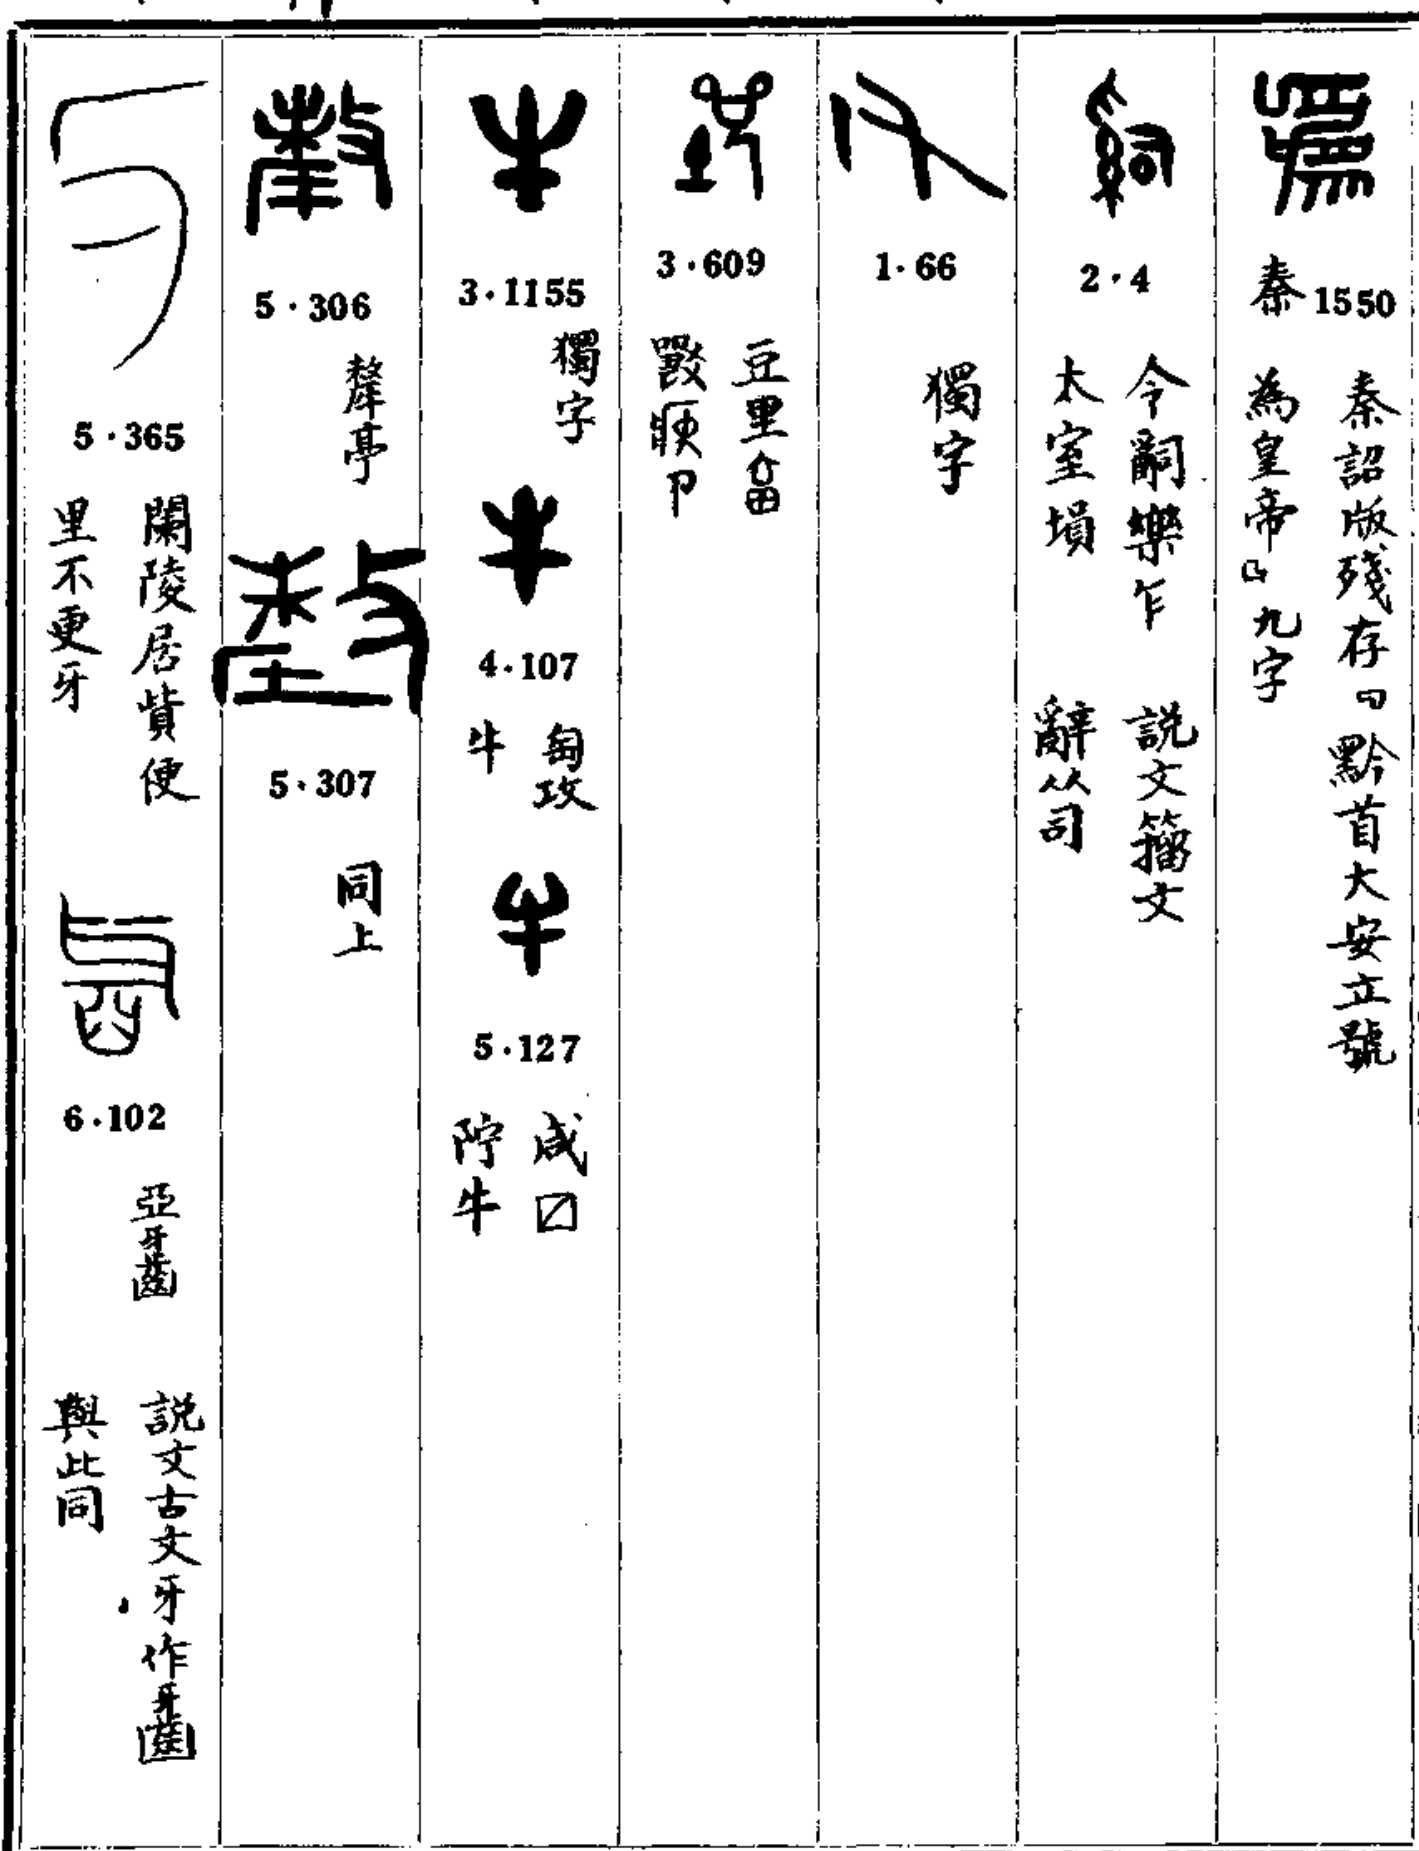 秦1550
秦詔版殘存『黔首大安立號
為皇帝』九字
2·4
令嗣樂乍
太室塤
説文籀文
辭从司
1·66
獨字
3·609
豆里
3·1155
獨字
4·107
匋攻
牛
5·127
咸〼
㝉牛
5·306
犛亭
5·307
同上
5·365
闌陵居貲便
里不更牙
6·102
亞𤘈
説文古文牙作𤘈
與此同